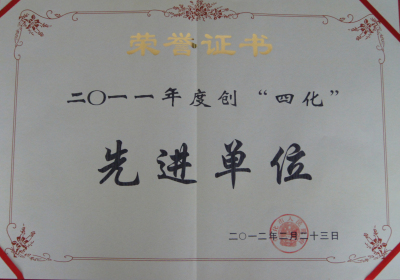 荣誉证书
二〇一一年度创“四化”
先进单位
二〇一二年二月二十三日